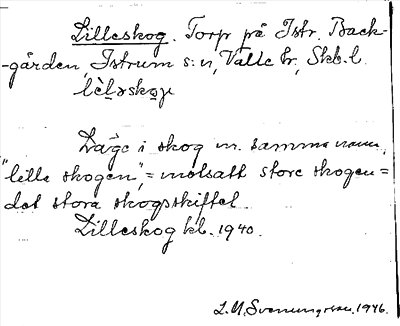 Lilleskog. Torp på Istr. Back-
-gården, Istrum s:n, Valle hr, Skb. l.
Läge i skog m. samma namn,
"lilla skogen", = motsatt store skogen =
det stora skogsskiftet.
Lilleskog kb. 1940.
L.M. Svenungsson. 1946.